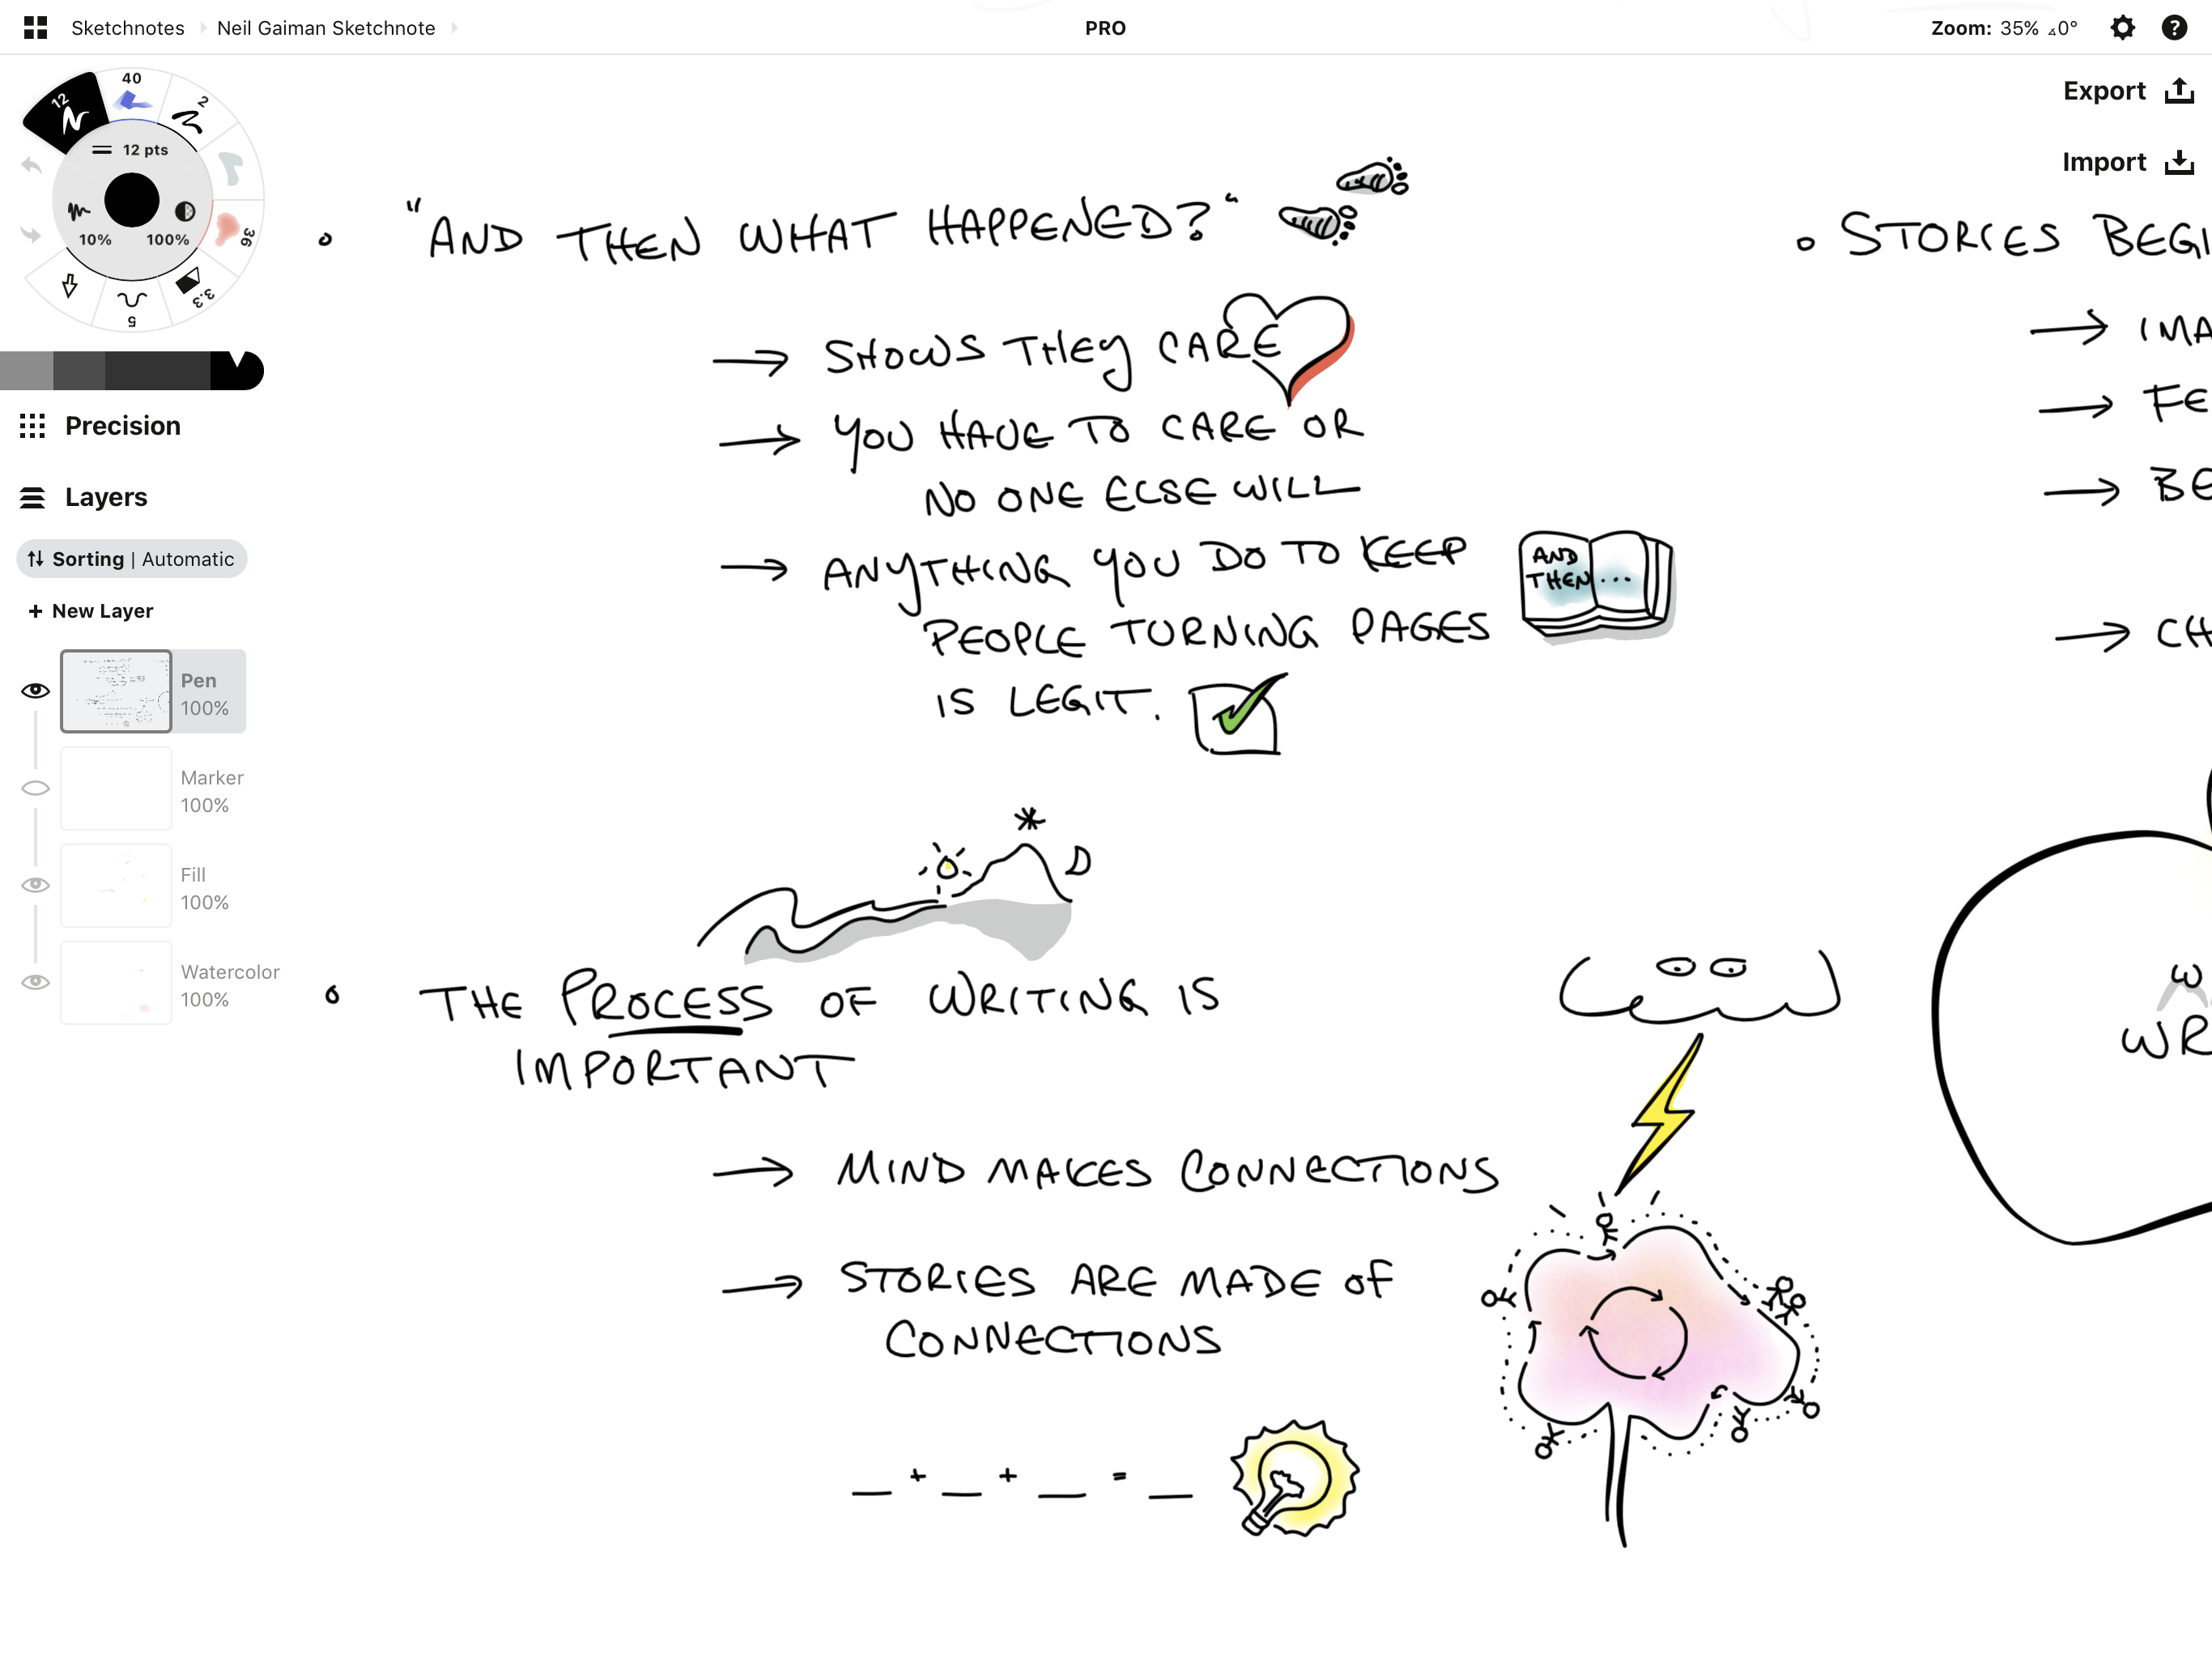 Sketchnotes
Neil Gaiman Sketchnote
PRO
Zoom: 35% ⦟0°
?
Export
Import
40
12
2
12 pts
10%
100%
36
3.3
5
Precision
Layers
Sorting | Automatic
+ New Layer
Pen
100%
Marker
100%
Fill
100%
Watercolor
100%
"AND THEN WHAT HAPPENED?"
→ SHOWS THEY CARE
→ YOU HAVE TO CARE OR
NO ONE ELSE WILL
→ ANYTHING YOU DO TO KEEP
PEOPLE TURNING PAGES
IS LEGIT.
AND
THEN ...
THE PROCESS OF WRITING IS
IMPORTANT
→ MIND MAKES CONNECTIONS
→ STORIES ARE MADE OF
CONNECTIONS
_ + _ + _ = _
STORIES BEGI
→ IMA
→ FE
→ BE
→ CH
W
WR